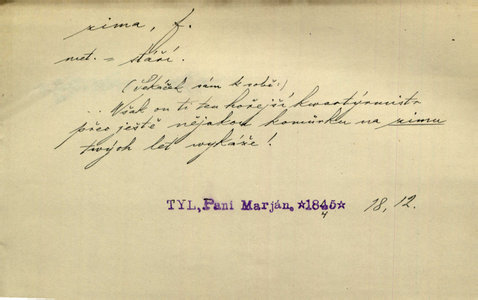 zima, f.
met. = stáří.
(Sekáček sám k sobě:)
... Však on ti ten hořejší kwartýrmistr
přec ještě nějakou komůrku na zimu
twých let wykáže!
TYL, Paní Marján. *1845* 18, 12.
4